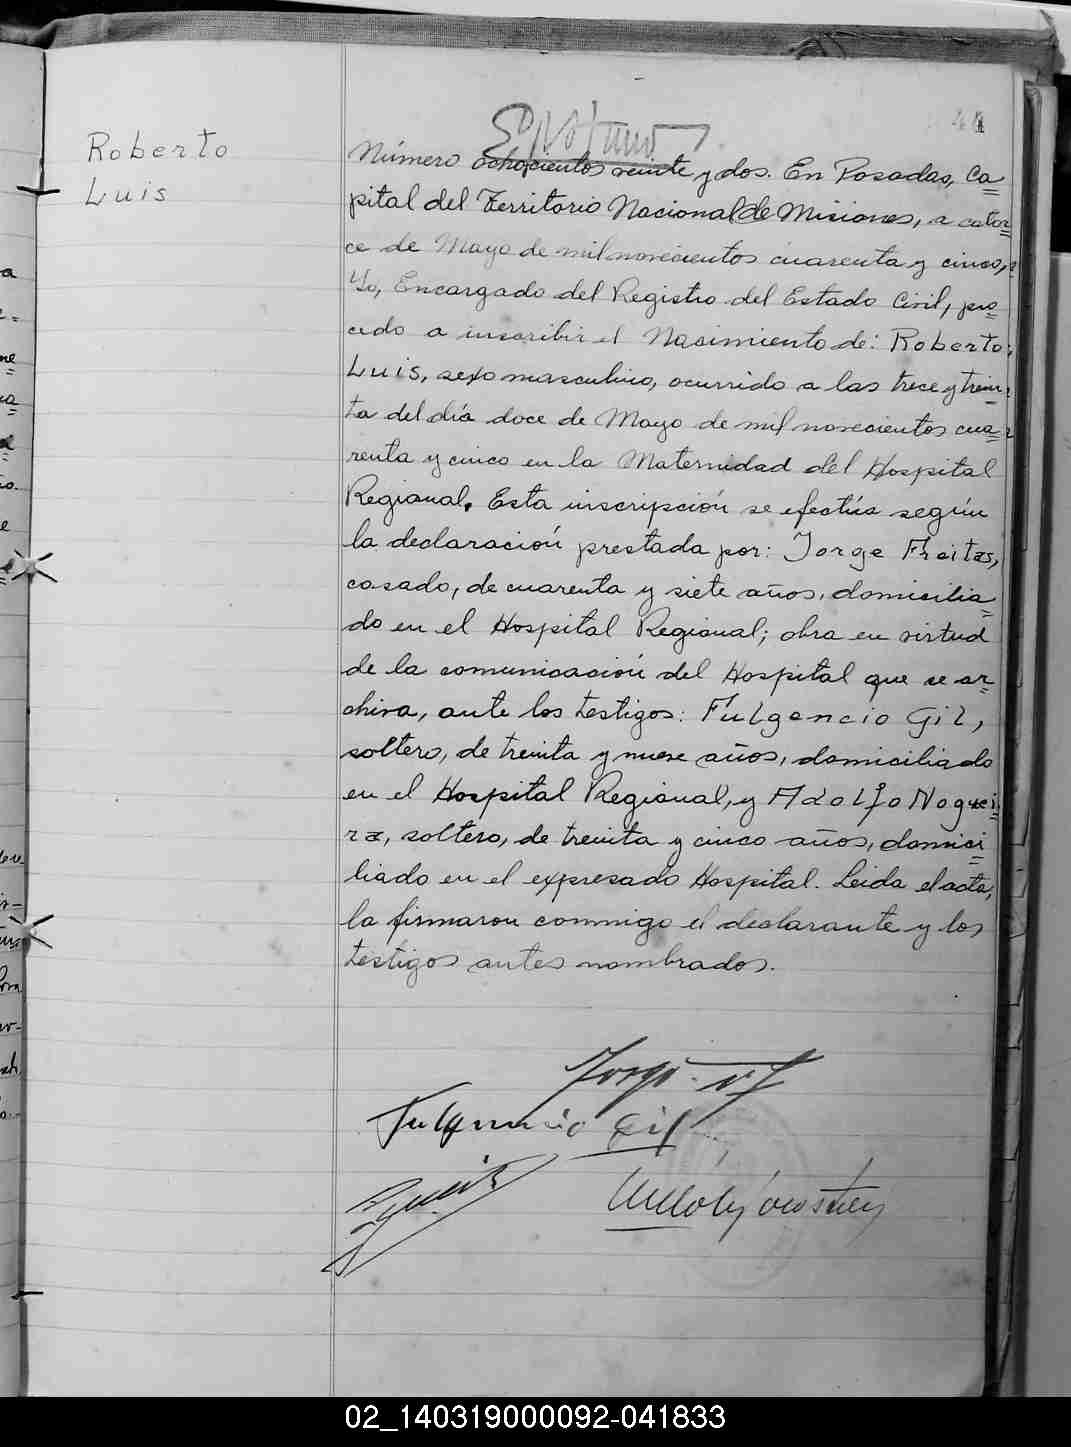 Roberto
Luis
Número ochocientos veinte y dos. En Posadas, Ca=
pital del Territorio Nacional de Misiones, a cator=
ce de Mayo de mil novecientos cuarenta y cinco,
Yo, Encargado del Registro del Estado Civil, pro=
cedo a inscribir el Nacimiento de: Roberto
Luis, sexo masculino, ocurrido a las trece y trein=
ta del día doce de Mayo de mil novecientos cua=
renta y cinco en la Maternidad del Hospital
Regional. Esta inscripción se efectúa según
la declaración prestada por: Jorge Freitas,
casado, de cuarenta y siete años, domicilia=
do en el Hospital Regional; obra en virtud
de la comunicación del Hospital que se ar=
chiva, ante los testigos: Fulgencio Gil,
soltero, de treinta y nueve años, domiciliado
en el Hospital Regional, y Adolfo Noguei=
ra, soltero, de treinta y cinco años, domici=
liado en el expresado Hospital. Leida el acta,
la firmaron conmigo el declarante y los
testigos antes nombrados.
Fulgencio Gil
02_140319000092-041833